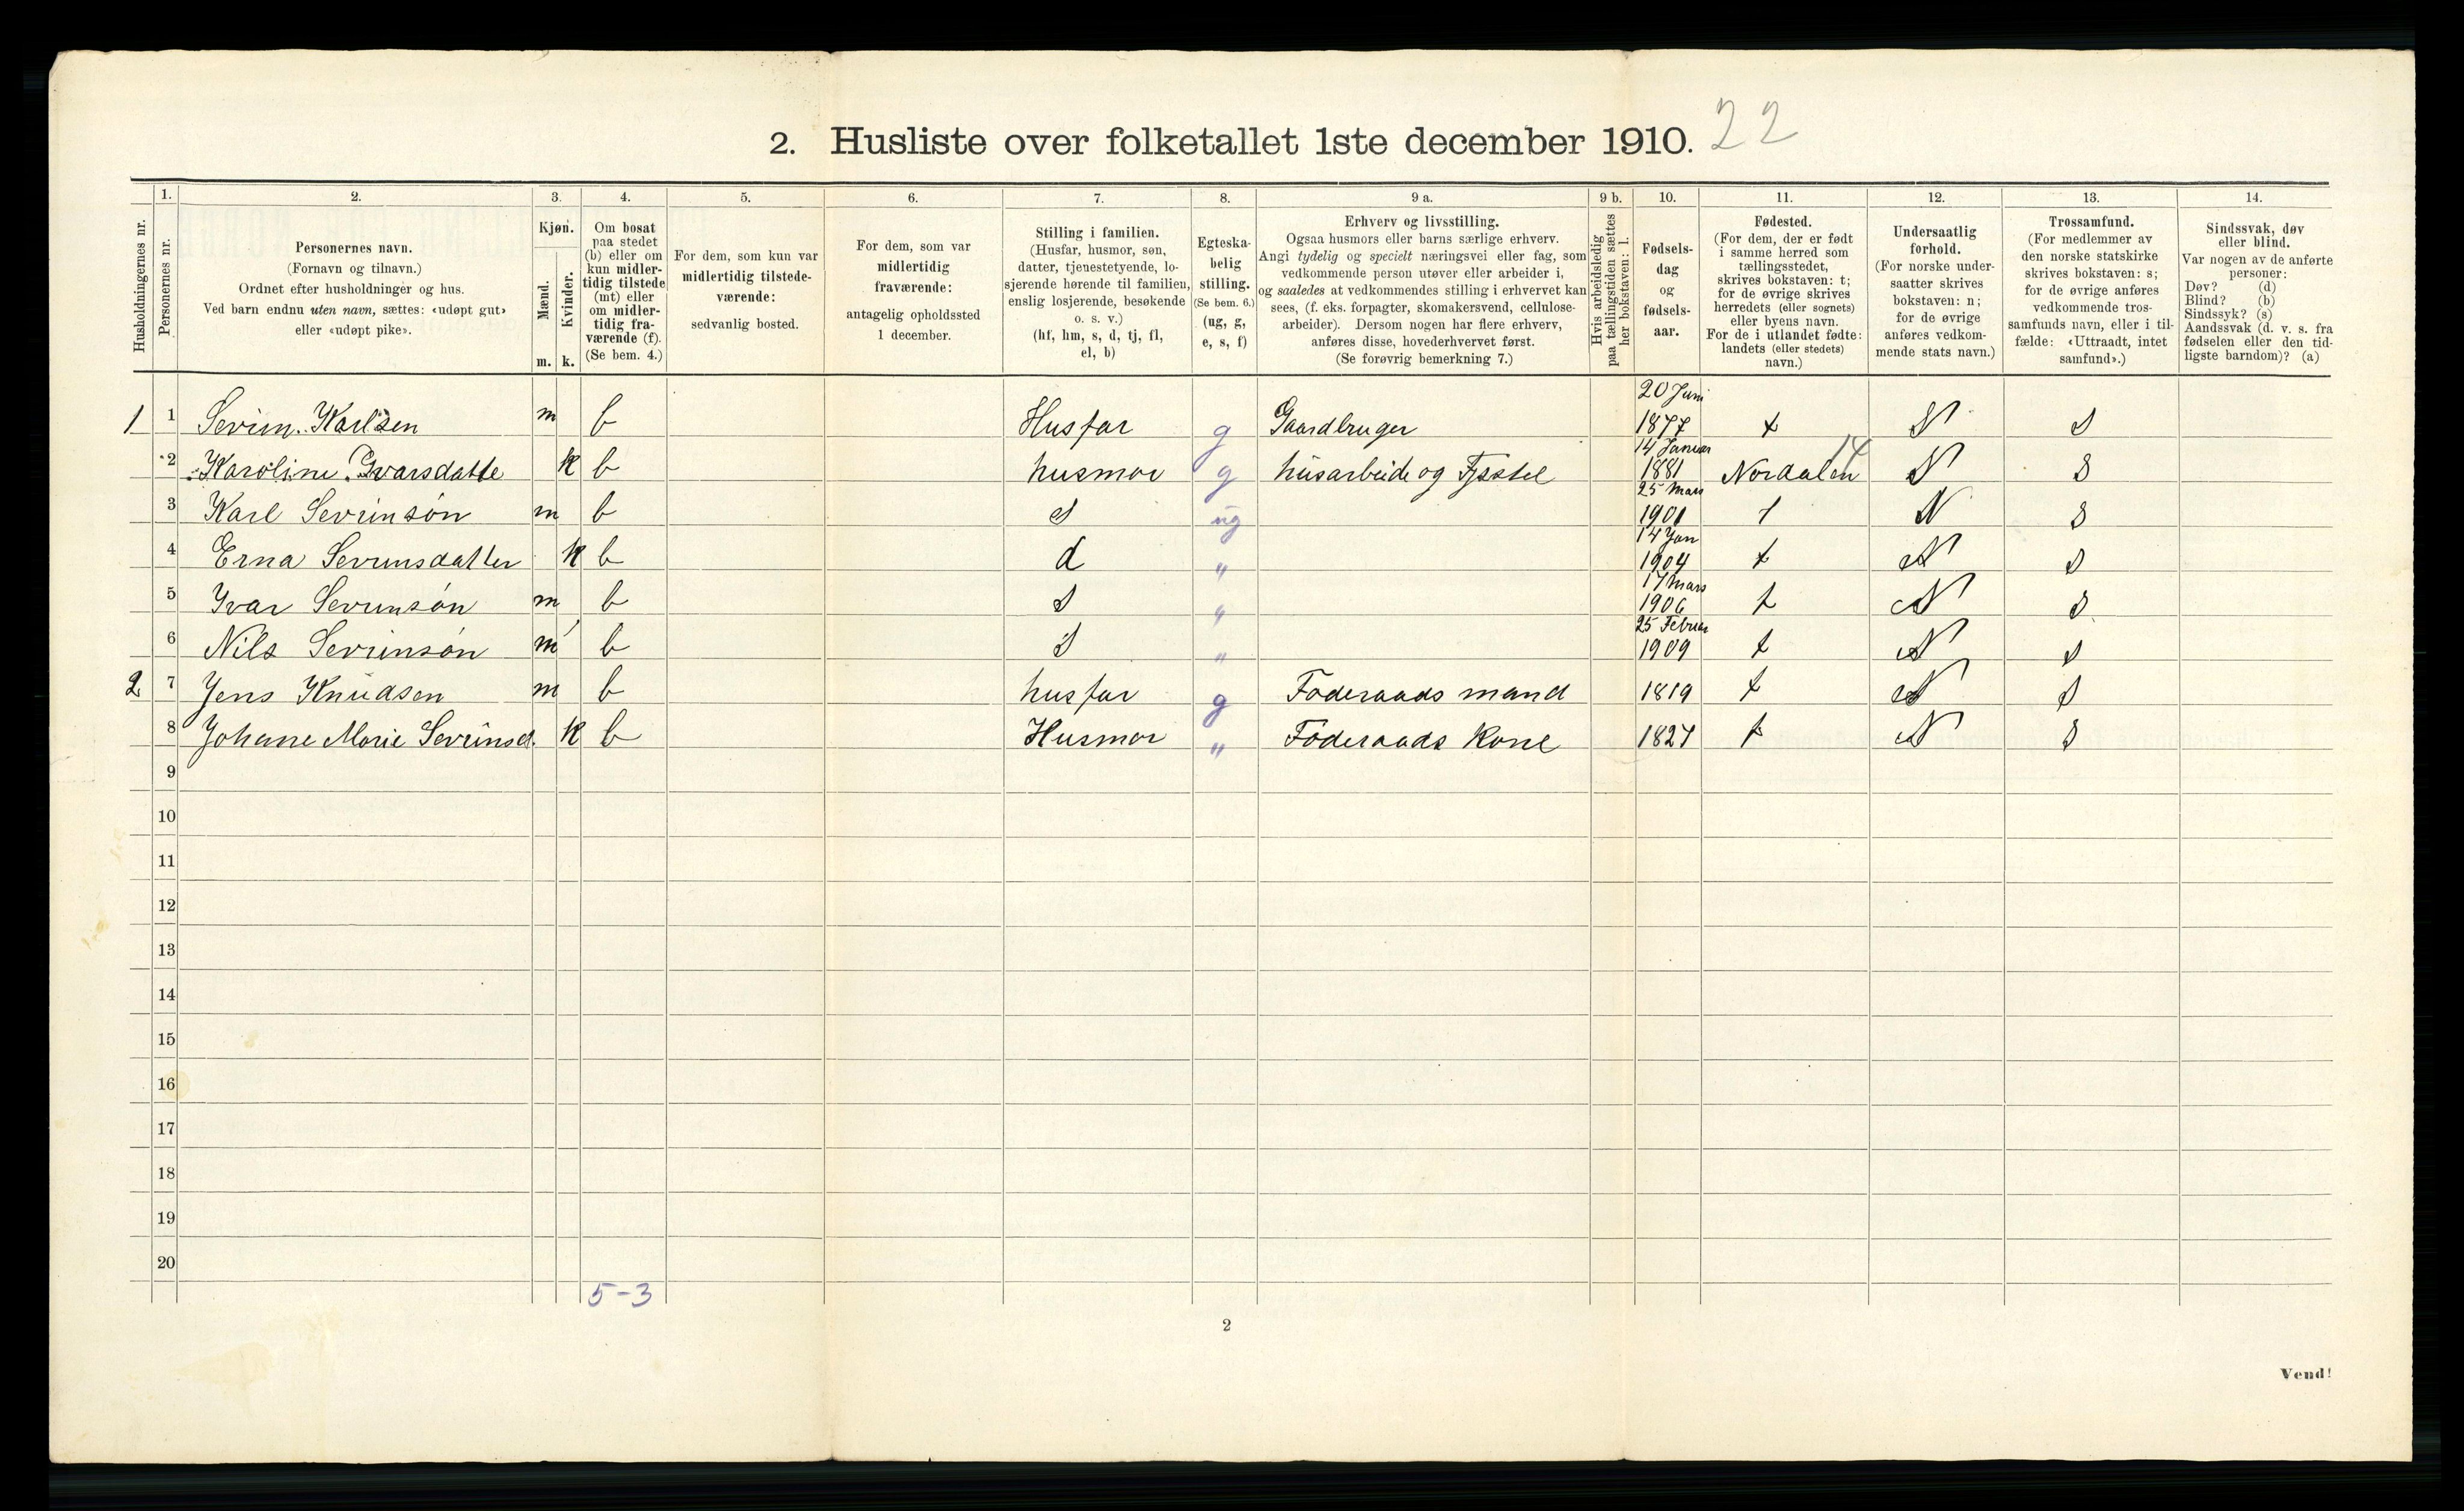 2. Husliste over folketallet 1ste december 1910. 22
Husholdningernes nr.
1.
Personernes nr.
2.
Personernes navn.
(Fornavn og tilnavn.)
Ordnet efter husholdninger og hus.
Ved barn endnu uten navn, sættes: «udøpt gut»
eller «udøpt pike».
3.
Kjøn.
Mænd.
Kvinder.
m. k.
4.
Om bosat
paa stedet
(b) eller om
kun midler-
tidig tilstede
(mt) eller
om midler-
tidig fra-
værende (f).
(Se bem. 4.)
5.
For dem, som kun var
midlertidig tilstede-
værende:
sedvanlig bosted.
6.
For dem, som var
midlertidig
fraværende:
antagelig opholdssted
1 december.
7.
Stilling i familien.
(Husfar, husmor, søn,
datter, tjenestetyende, lo-
sjerende hørende til familien,
enslig losjerende, besøkende
o. s. v.)
(hf, hm, s, d, tj, fl,
el, b)
8.
Egteska-
belig
stilling.
(Se bem. 6.)
(ug, g,
e, s, f)
9 a.
Erhverv og livsstilling.
Ogsaa husmors eller barns særlige erhverv.
Angi tydelig og specielt næringsvei eller fag, som
vedkommende person utøver eller arbeider i,
og saaledes at vedkommendes stilling i erhvervet kan
sees, (f. eks. forpagter, skomakersvend, cellulose-
arbeider). Dersom nogen har flere erhverv,
anføres disse, hovederhvervet først.
(Se forøvrig bemerkning 7.)
9 b.
Hvis arbeidsledig
paa tællingstiden sættes
her bokstaven: l.
10.
Fødsels-
dag
og
fødsels-
aar.
11.
Fødested.
(For dem, der er født
i samme herred som
tællingsstedet,
skrives bokstaven: t;
for de øvrige skrives
herredets (eller sognets)
eller byens navn.
For de i utlandet fødte:
landets (eller stedets)
navn.)
12.
Undersaatlig
forhold.
(For norske under-
saatter skrives
bokstaven: n;
for de øvrige
anføres vedkom-
mende stats navn.)
13.
Trossamfund.
(For medlemmer av
den norske statskirke
skrives bokstaven: s;
for de øvrige anføres
vedkommende tros-
samfunds navn, eller i til-
fælde: «Uttraadt, intet
samfund».)
14.
Sindssvak, døv
eller blind.
Var nogen av de anførte
personer:
Døv? (d)
Blind? (b)
Sindssyk? (s)
Aandssvak (d. v. s. fra
fødselen eller den tid-
ligste barndom)? (a)
20 Juni
1 1 Sevrin. Karlsen m b Husfar g Gaardbruger 1877 t N S
14 Januar 14
2 Karoline Ivarsdatte k b husmor g husarbeide og Fjsstel 1881 Nordalen N S
25 Mars
3 Karl Sevrinsøn m b S ug 1901 t N S
14 Jan
4 Erna Sevrinsdatter k b d " 1904 t N S
17 Mars
5 Ivar Sevrinsøn m b S " 1906 t N S
25 Februar
6 Nils Sevrinsøn m b S " 1909 t N S
2 7 Jens Knudsen m b husfar g Foderaads mand 1819 t N S
8 Johane Marie Sevrinsd. k b Husmor " Foderaads Kone 1827 t N S
9
10
11
12
13
14
15
16
17
18
19
20
5-3
2
Vend!